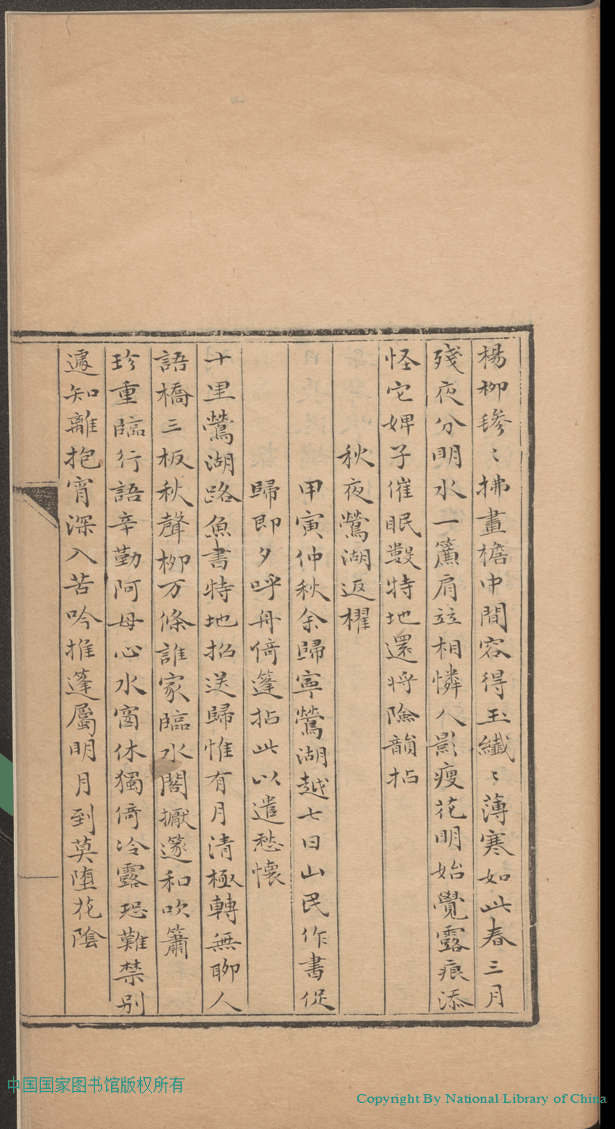 楊柳毿〻拂畫檐中間容得玉纖〻薄寒如此春三月
殘夜分明水一簾肩竝相憐人影瘦花明始覺露痕添
怪它婢子催眠數特地還將險韻拈
秋夜鶯湖返櫂
甲寅仲秋余歸寧鶯湖越七日山民作書促
歸即夕呼舟倚篷拈此以遣愁懷
十里鶯湖路魚書特地招送歸惟有月清極轉無聊人
語橋三板秋聲柳万條誰家臨水閣擫篴和吹簫
珍重臨行語辛勤阿母心水窗休獨倚冷露恐難禁別
遽知離抱宵深入苦吟推蓬屬明月到莫墮花陰
中国国家图书馆版权所有
Copyright By National Library of China